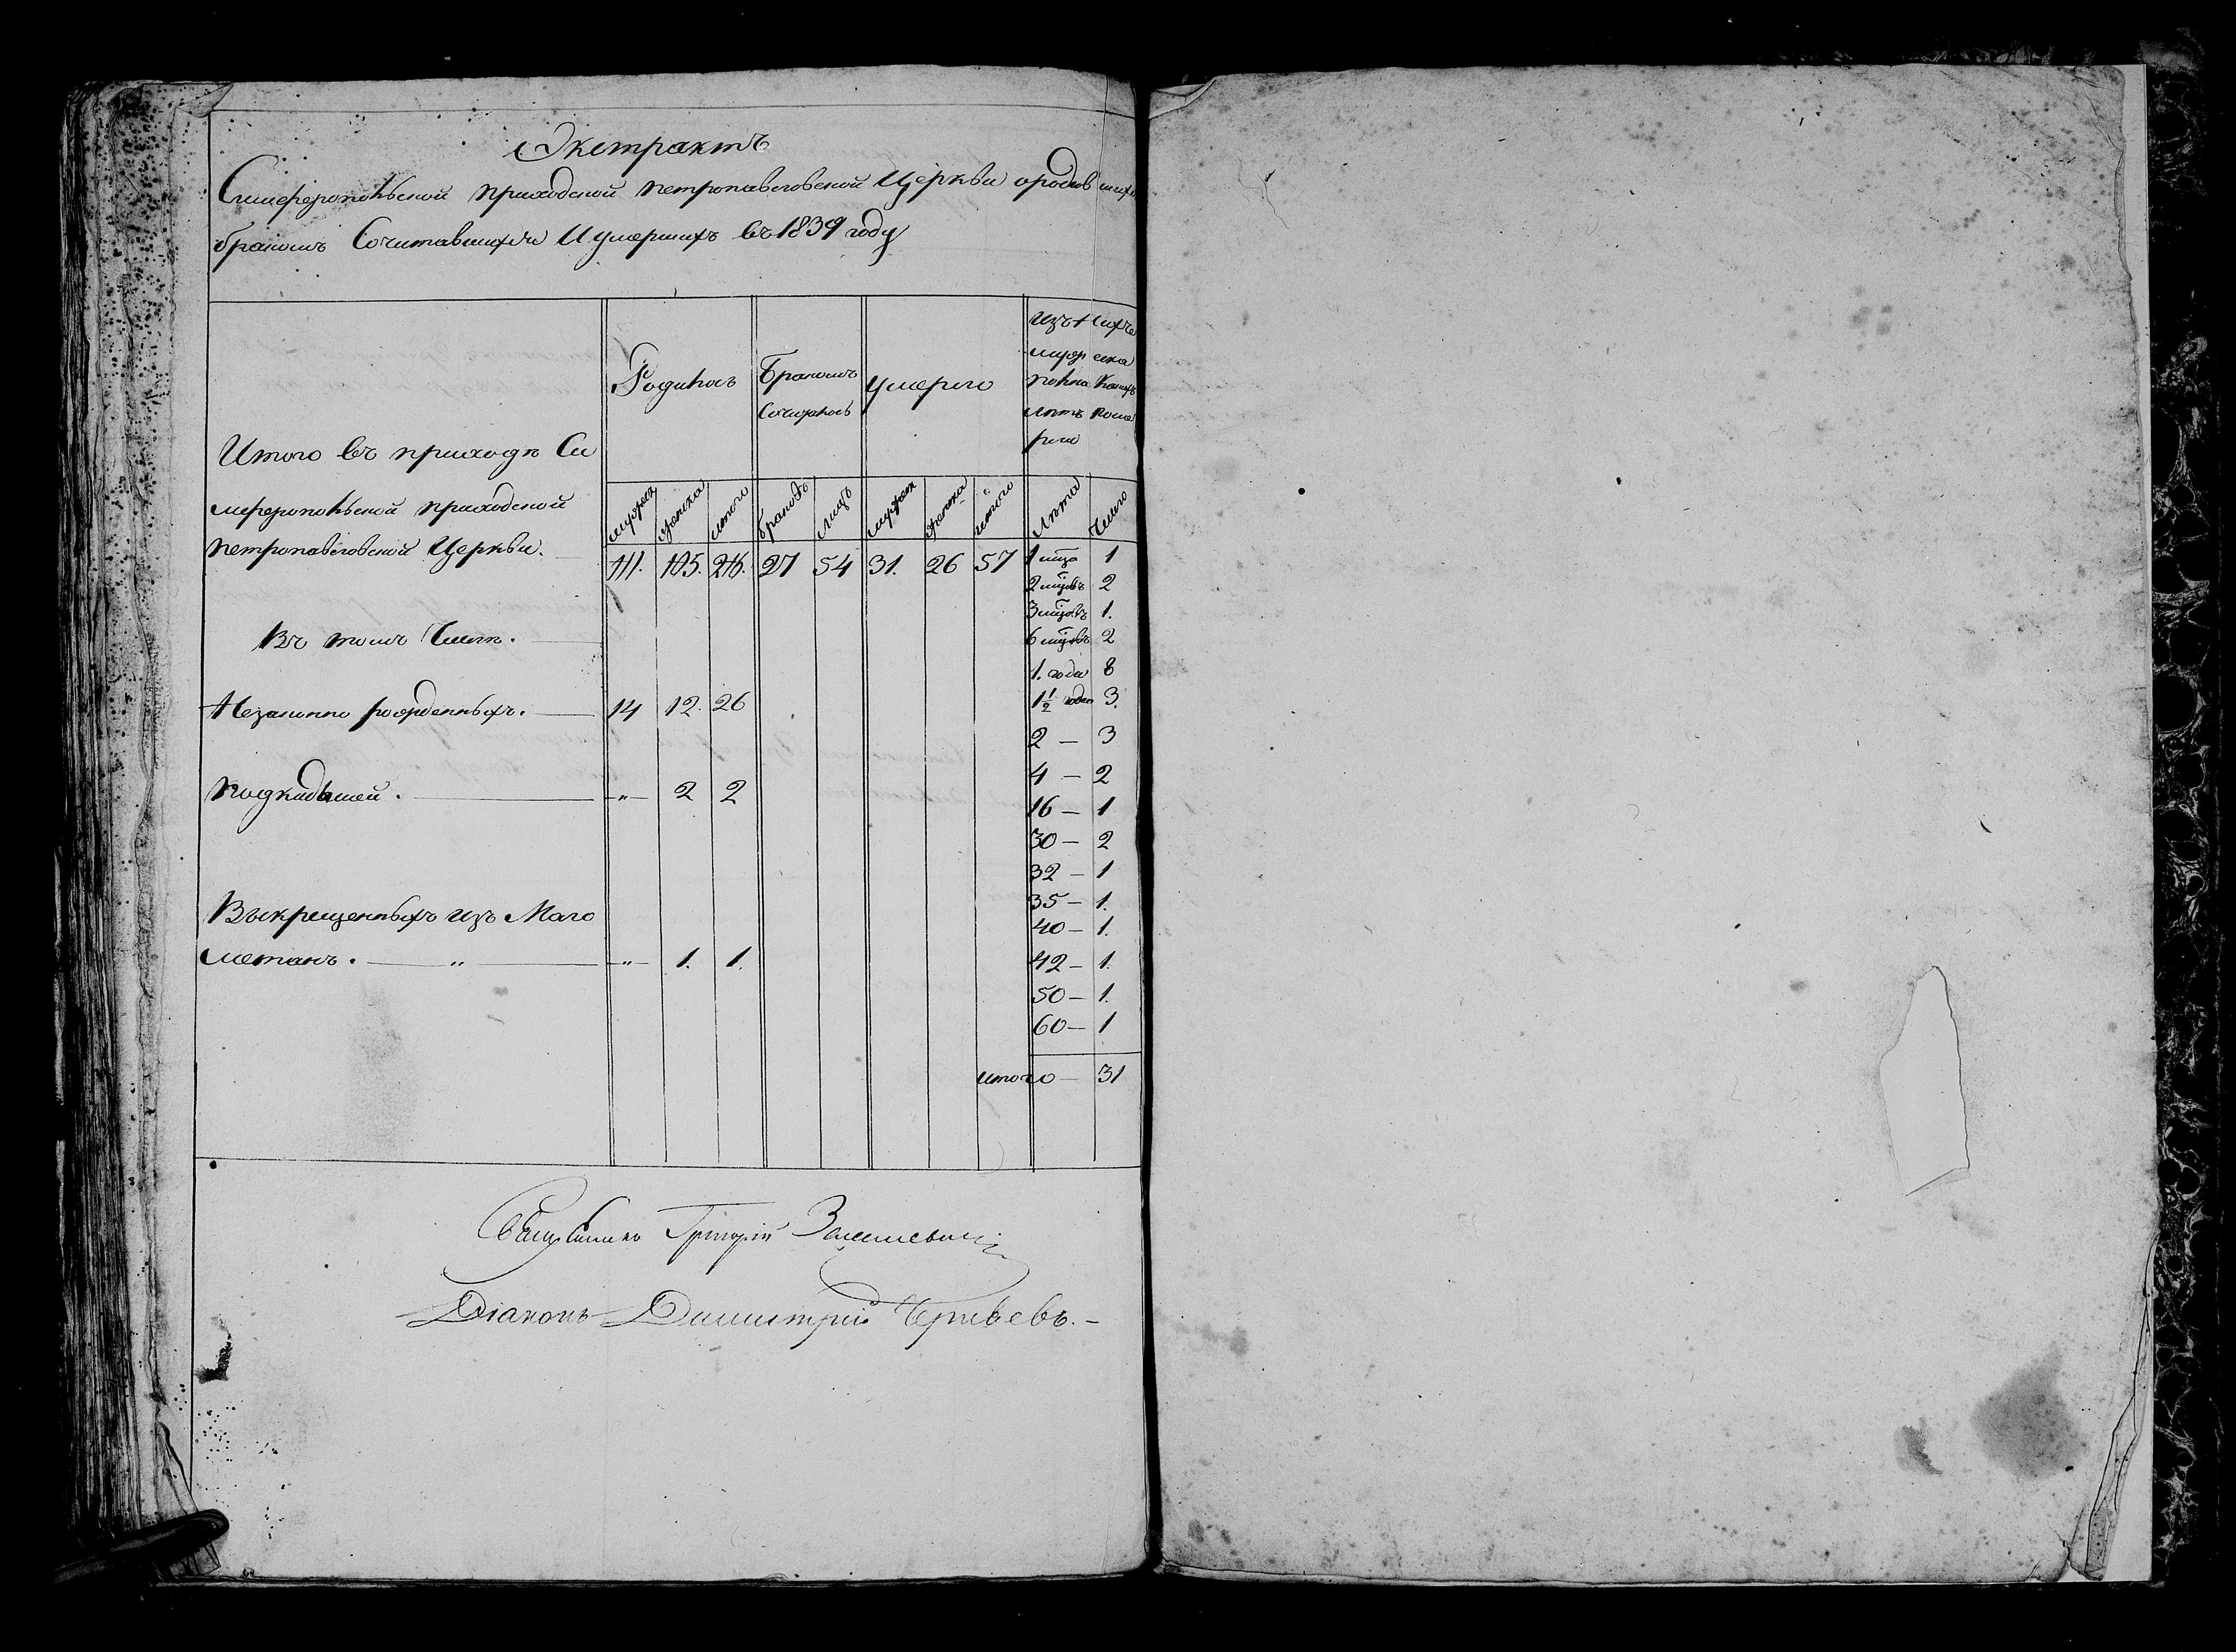 Экстрактъ
Симферопольской приходской петропавловской Церкви о родившихся
бракомъ Сочитавшихся И умершихъ въ 1839 году
Родилось Бракомъ Сочиталось умерло Изъ Нихъ мужеска пола Какихъ лѣтъ померли
Итого въ приходѣ Си
мферопольской приходской
петропавловской Церкви.
мужеск женска итого браковъ лицъ мужеск женска итого лѣта Число
111. 105. 216. 27 54 31. 26 57 1 мца 1
2 мцовъ 2
3 мцовъ 1.
Въ томъ Числѣ. 6 мцовъ 2
1. года 8
Незаконно рожденныхъ. 14 12. 26 1 1/2 года 3.
2 — 3
4 — 2
подкидышей. „ 2 2
16 — 1
30 — 2
32 — 1
35 — 1.
Выкрещенныхъ изъ Маго
40 — 1.
метанъ. „ „ 1. 1. 42 — 1.
50 — 1.
60 — 1
итого — 31
Священникъ Григорій
Діаконъ Димитрій